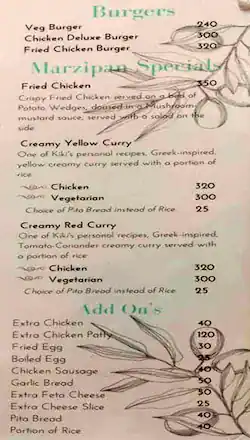 Burgers
Veg Burger 240
Chicken Deluxe Burger 300
Fried Chicken Burger 320
Marzipan Specials
Fried Chicken 350
Crispy Fried Chicken served on a bed of
Potato Wedges, doused in a Mushroom
mustard sauce, served with a salad on the
side
Creamy Yellow Curry
One of Kiki's personal recipes, Greek-inspired,
yellow creamy curry served with a portion of
rice
Chicken 320
Vegetarian 300
Choice of Pita Bread instead of Rice 25
Creamy Red Curry
One of Kiki's personal recipes, Greek-inspired,
Tomato-Coriander creamy curry served with
a portion of rice
Chicken 320
Vegetarian 300
Choice of Pita Bread instead of Rice 25
Add On's
Extra Chicken 40
Extra Chicken Patty 120
Fried Egg 30
Boiled Egg 25
Chicken Sausage 40
Garlic Bread 50
Extra Feta Cheese 50
Extra Cheese Slice 25
Pita Bread 40
Portion of Rice 40